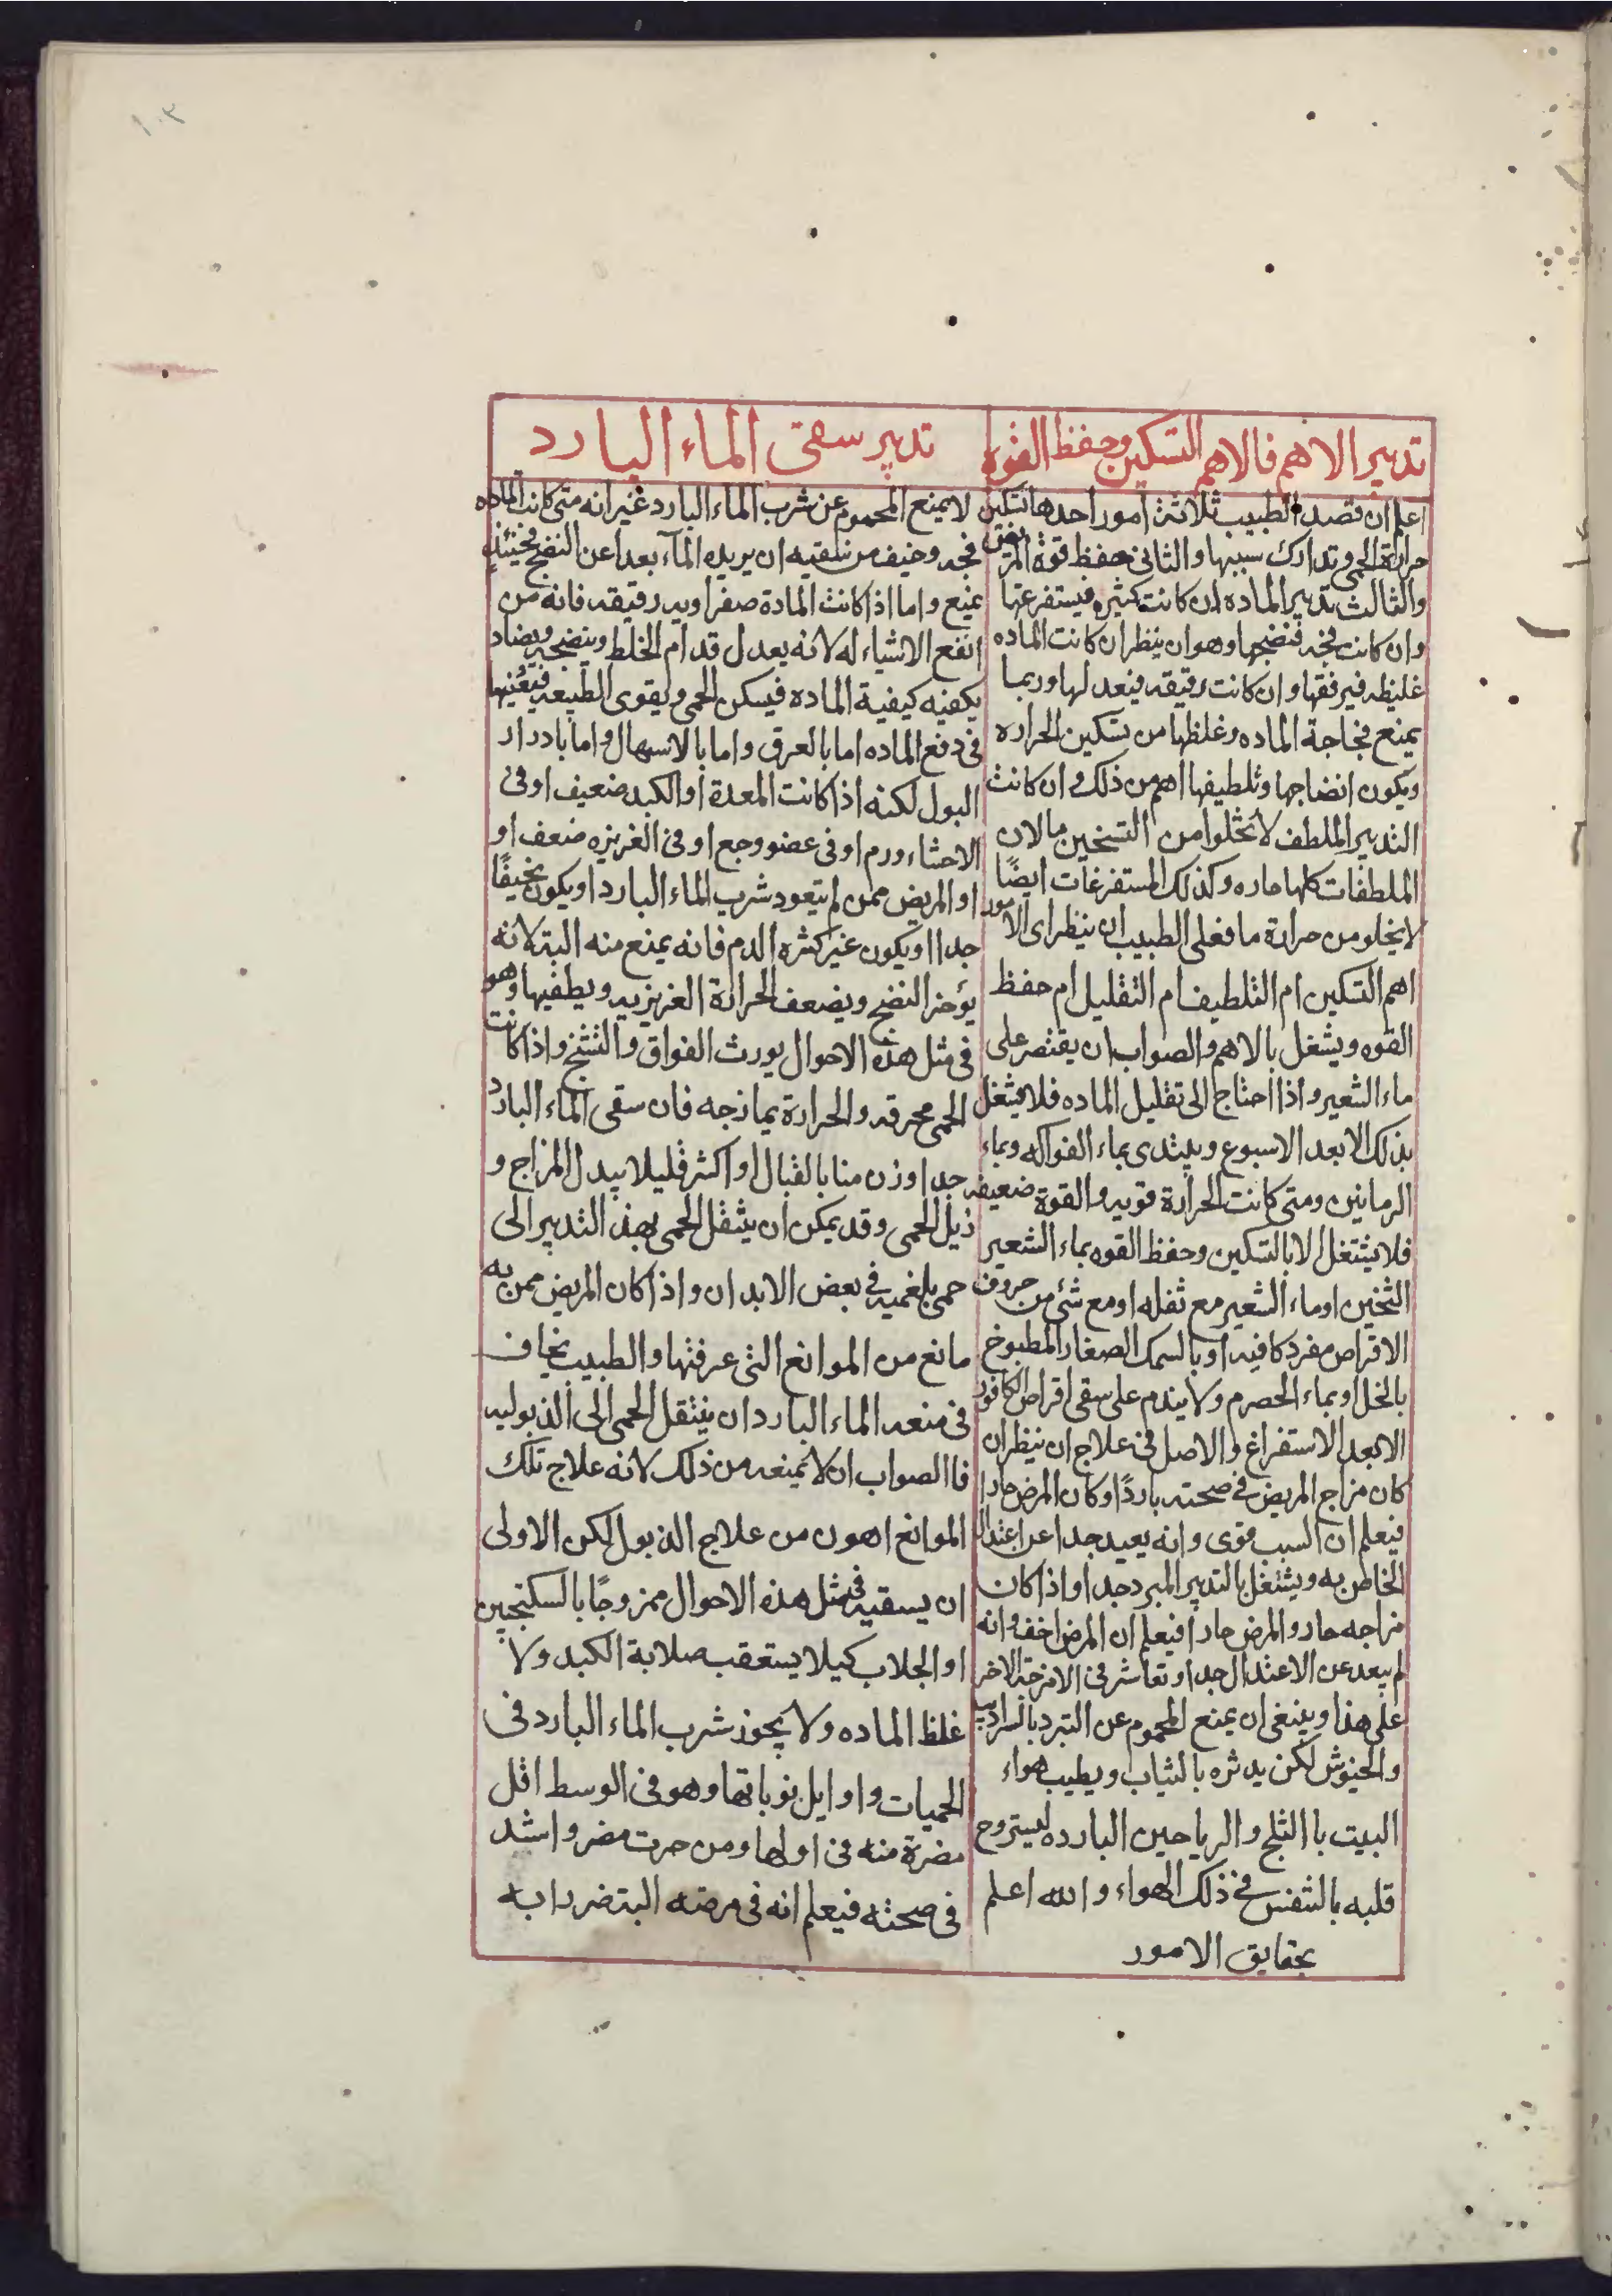 ١٠٣
تدبير الاهم فالاهم التسكين وحفظ القوه
اعلم ان قصد الطبيب ثلاثة امور احدها تسكين
حرارة الحمى وتدارك سببها والثانى حفظ قوة المريض
والثالث تدبير الماده ان كانت كثيره فيستفرغها
وان كانت فجه فنضجها وهو ان ينظر ان كانت الماده
غليظه فيرققها وان كانت رقيقه فيعد لها وربما
يمنع فجاجة الماده وغلظها من تسكين الحراره
ويكون انضاجها وتلطيفها اهم من ذلك وان كانت
التدبير الملطف لا تخلوا من التسخين ما لان
الملطفات كلها حاره وكذلك المستفرغات ايضًا
لا يخلو من حرارة ما فعلى الطبيب ان ينظر اى الامور
اهم التسكين ام التلطيف ام التقليل ام حفظ
القوه ويشغل بالاهم والصواب ان يقتصر على
ماء الشعير واذا احتاج الى تقليل الماده فلا يشغل
بذلك الا بعد الاسبوع ويبتدى بماء الفواكه وبماء
الرمانين ومتى كانت الحرارة قويه والقوة ضعيفه
فلا يشتغل الا بالتسكين وحفظ القوه بماء الشعير
الثخين او ماء الشعير مع ثفله او مع شئ من حروف
الاقراص مفرد كافيه او بالسمك الصغار المطبوخ
بالخل او بماء الحصرم ولا يندم على سقى اقراص الكافور
الا بعد الاستفراغ والاصل فى علاج ان ينظر ان
كان مزاج المريض فى صحته باردًا وكان المرض حارا
فيعلم ان السبب قوى وانه بعيد جدا عن اعتدال
الخاص به ويشتغل بالتدبير المبرد جدا واذا كان
مزاجه حار والمرض حارا فيعلم ان المرض اخف وانه
لم يبعد عن الاعتدال جدا وتعاشر فى الامزجة الاخر
على هذا وينبغى ان يمنع المحموم عن التبرد بالسراديب
والخيوش لكن يدثره بالثياب ويطيب هواء
البيت باالثلج والرياحين البارده ليستروح
قلبه بالتنفس فى ذلك الهواء والله اعلم
بحقايق الامور
تدبير سقى الماء البارد
لا يمنع المحموم عن شرب الماء البارد غير انه متى كانت الماده
فجه وخيف من سقيه ان يريده المآء بعدا عن النضج فحينئذ
يمنع واما اذا كانت المادة صفراويه رقيقه فانه من
انفع الاشياء له لانه يعدل قد ام الخلط وينضجه ويضاد
بكفيه كيفية الماده فيسكن الحمى ويقوى الطبيعه فيعينها
فى دفع الماده اما بالعرق واما بالاسهال واما بادرار
البول لكنه اذا كانت المعدة او الكبد ضعيف او فى
الاحشاء ورم او فى عضو وجع او فى الغريزه ضعف او
او المريض ممن لم يتعود شرب الماء البارد او يكون نحيفًا
جدا او يكون غير كثره الدم فانه يمنع منه البته لانه
يؤخر النضج ويضعف الحرارة الغريزيه ويطفيها وهو
فى مثل هذه الاحوال يورث الفواق والتشنج واذا كانت
الحمى محرقه والحرارة يمازجه فان سقى الماء البارد
جدا وزن منا بالقبال او اكثر قليلا يبدل المزاج و
زيل الحمى وقد يمكن ان ينتقل الحمى بهذ التدبير الى
حمى بلغميه فى بعض الابدان واذا كان المريض ممن به
مانع من الموانع التى عرفتها والطبيب يخاف
فى منعه الماء البارد ان ينتقل الحمى الى الذبوليه
فاالصواب ان لا يمنعه من ذلك لانه علاج تلك
الموانع اهون من علاج الذبول لكن الاولى
ان يسقيه فى مثل هذه الاحوال ممزوجًا بالسكنجبين
او الجلاب كيلا يستعقب صلابة الكبد ولا
غلظ الماده ولا يجوز شرب الماء البارد فى
الحميات واوايل نوباتها وهو فى الوسط اقل
مضرة منه فى اولها ومن جرت مضر واشد
فى صحته فيعلم انه فى مرضه البته ضررا به